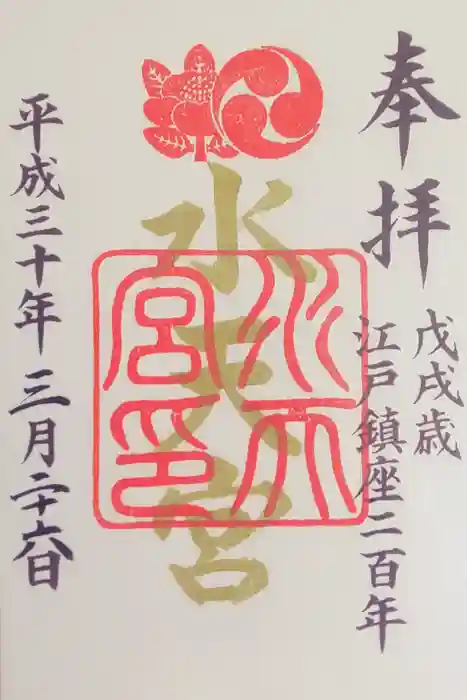 奉拝
戊戌歳
江戸鎮座二百年
水天宮
水天宮印
平成三十年三月二十六日